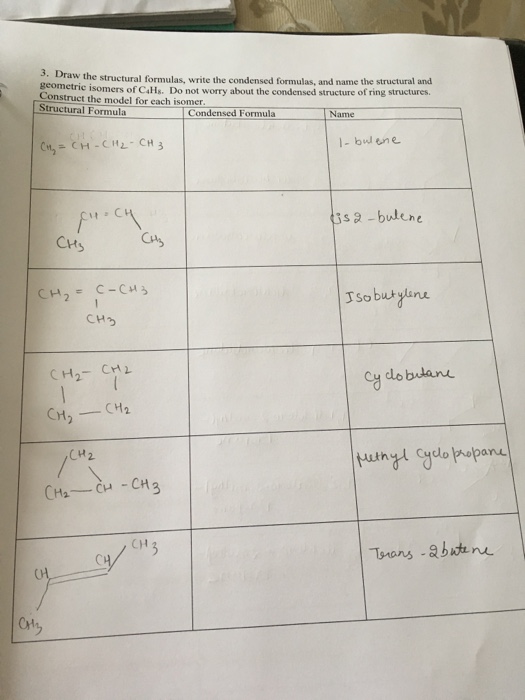 3. Draw the structural formulas, write the condensed formulas, and name the structural and
geometric isomers of C₄H₈. Do not worry about the condensed structure of ring structures.
Construct the model for each isomer.
Structural Formula Condensed Formula Name
CH₂ = CH - CH2 - CH3 1- butene
CH = CH
CH3 CH3
Cis 2 - butene
CH2 = C - CH3
CH3
Isobutylene
CH2 - CH2
CH2 — CH2
Cyclobutane
CH2
CH2 — CH - CH3
Methyl Cyclopropane
CH3
CH
CH
CH3
Trans - 2 butene